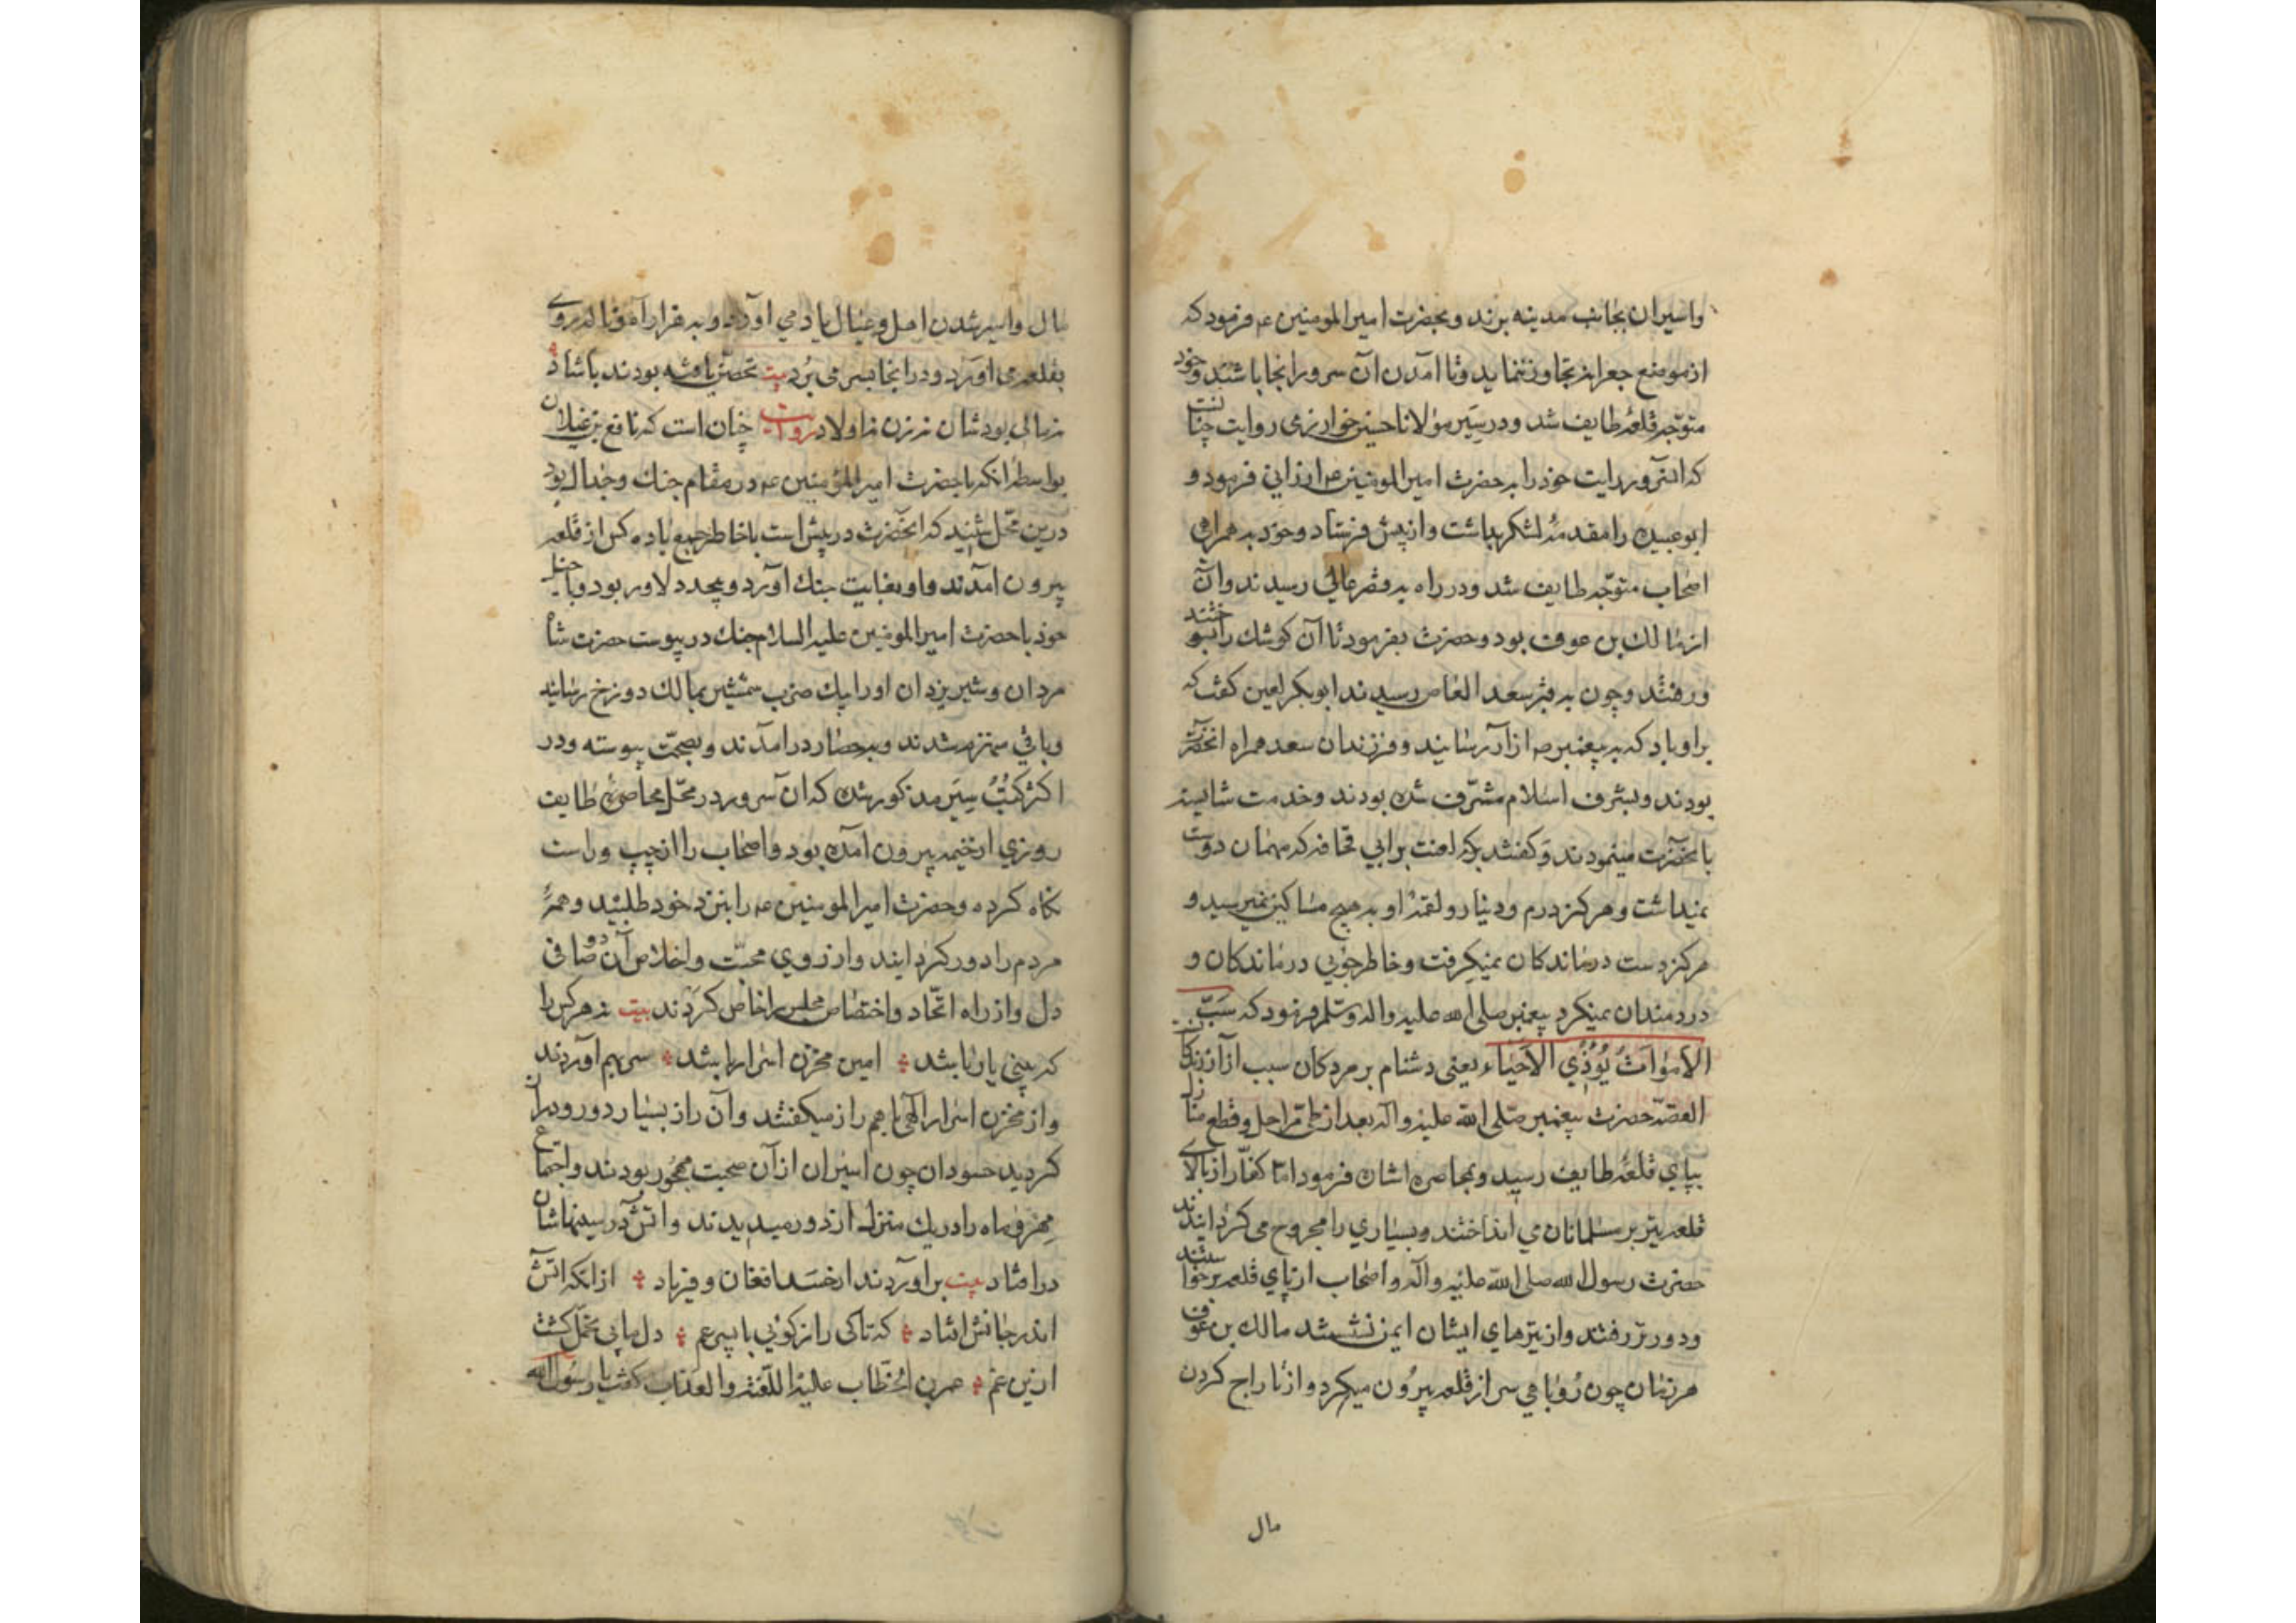 واسیران بجانب مدینه برند و بحضرت امیرالمومنین ع م فرمود که
از موضع جعرانه تجاوز ننماید و تا امدن آن سرور انجا باشند وخود
متوجه قلعهٔ طایف شد و در سیر مولانا حسین خوارزمی روایت چنانست
که انسرور رایت خود را به حضرت امیرالمومنین ع م ارزانی فرمود و
ابوعبیده را مقدمهٔ لشکر بداشت و از پیش فرستاد و خود به همراهی
اصحاب متوجه طایف شد و در راه به قصر عالی رسیدند و آن
از مالك بن عوف بود و حضرت بفرمود تا آن کوشك را بسوختند
و رفتند و چون به قبر سعد العاص رسیدند ابوبکر لعین کفت که
بر او باد که به پیغمبر ص ازار رسانید و فرزندان سعد همراه انحضرت
بودند و بشرف اسلام مشرّف شده بودند و خدمت شایسته
بانحضرت مینمودند و کفتند که لعنت بر ابی قحافه که مهمان دوست
نمیداشت و هرکز درم و دینار و لقمهٔ او به هیچ مساکین نمیرسید و
هرکز دست درماندکان نمیکرفت و خاطرجویی درماندکان و
دردمندان نمیکرد پیغمبر صلی الله علیه واله وسلم فرمود که سَبّ
الاَمواتِ یُؤذي الاَحیاء یعنی دشنام بر مردکان سبب آزار زندکان
القصه حضرت پیغمبر صلی الله علیه واله بعد از طی مراحل و قطع منازل
بپای قلعهٔ طایف رسید و بمحاصره اشان فرمود اما کفّار از بالای
قلعه تیر بر مسلمانان می انداختند و بسیاري را مجروح می کردانیدند
حضرت رسول الله صلی الله علیه وآله و اصحاب از پای قلعه برخواستند
و دورتر رفتند و از تیرهای ایشان ایمن نشستند مالك بن عوف
هر زمان چون رُوباهی سر از قلعه بیرُون میکرد و از تاراج کردن
مال
مال و اسیر شدن اهل و عیال یاد می آورد و به قرار آمو ناله روی
بقلعه می آورد و در انجا بسر می بُرد بیت تحصّن یافته بودند با شاد
زمالی بود شان نه زن نه اولاد روایت چنان است که نافع بن غیلان
بواسطه انکه با حضرت امیرالمؤمنین ع م در مقام جنك و جدال بود
درین محّل شنید که انحضرت در پیش است با خاطر جمع با ده کس از قلعه
بیرون امدند و او بغایت جنك آور و بیحد دلاور بود و با خیل
خود با حضرت امیرالمومنین علیه السلام جنك در پیوست حضرت شاه
مردان و شیر یزدان او را بیك ضرب شمشیر بمالك دوزخ رسانید
و باقی منهزم شدند و به حصار درامدند و بصحّت پیوسته و در
اکثر کتُبُ سِیَر مذکور شده که ان سرور در محّل محاصرهٔ طایف
روزي از خیمه بیرون امده بود و اصحاب را از چپ و راست
نکاه کرده و حضرت امیرالمومنین ع م را بنزد خود طلبید و همه
مردم را دور کردانید و از روي محبّت و اخلاص آن دو صافی
دل و از راه اتّحاد و اختصاص مجلس را خاص کردند بیت نه هرکس را
که بینی یار باشد ؞ امین مخزن اسرار باشد ؞ سر بهم آوردند
و از مخزن اسرار الهی با هم راز میکفتند و آن راز بسیار دور و دراز
کردید حسودان چون اسیران از آن صحبت مهجُور بودند و اجتماع
مِهر و ماه را در یك منزل از دور میدیدند و اتش در سینهاشان
در افتاد بیت براوردند از حسد افغان و فریاد ؞ از انکه اتش
اندر جانش افتاد ؞ که تاکی راز کوئی با پسر عم ؞ دل ما بی تحمّل کشت
ازین غم ؞ عمر بن الخطّاب علیه اللّعنة والعذاب کفت یا رسول الله